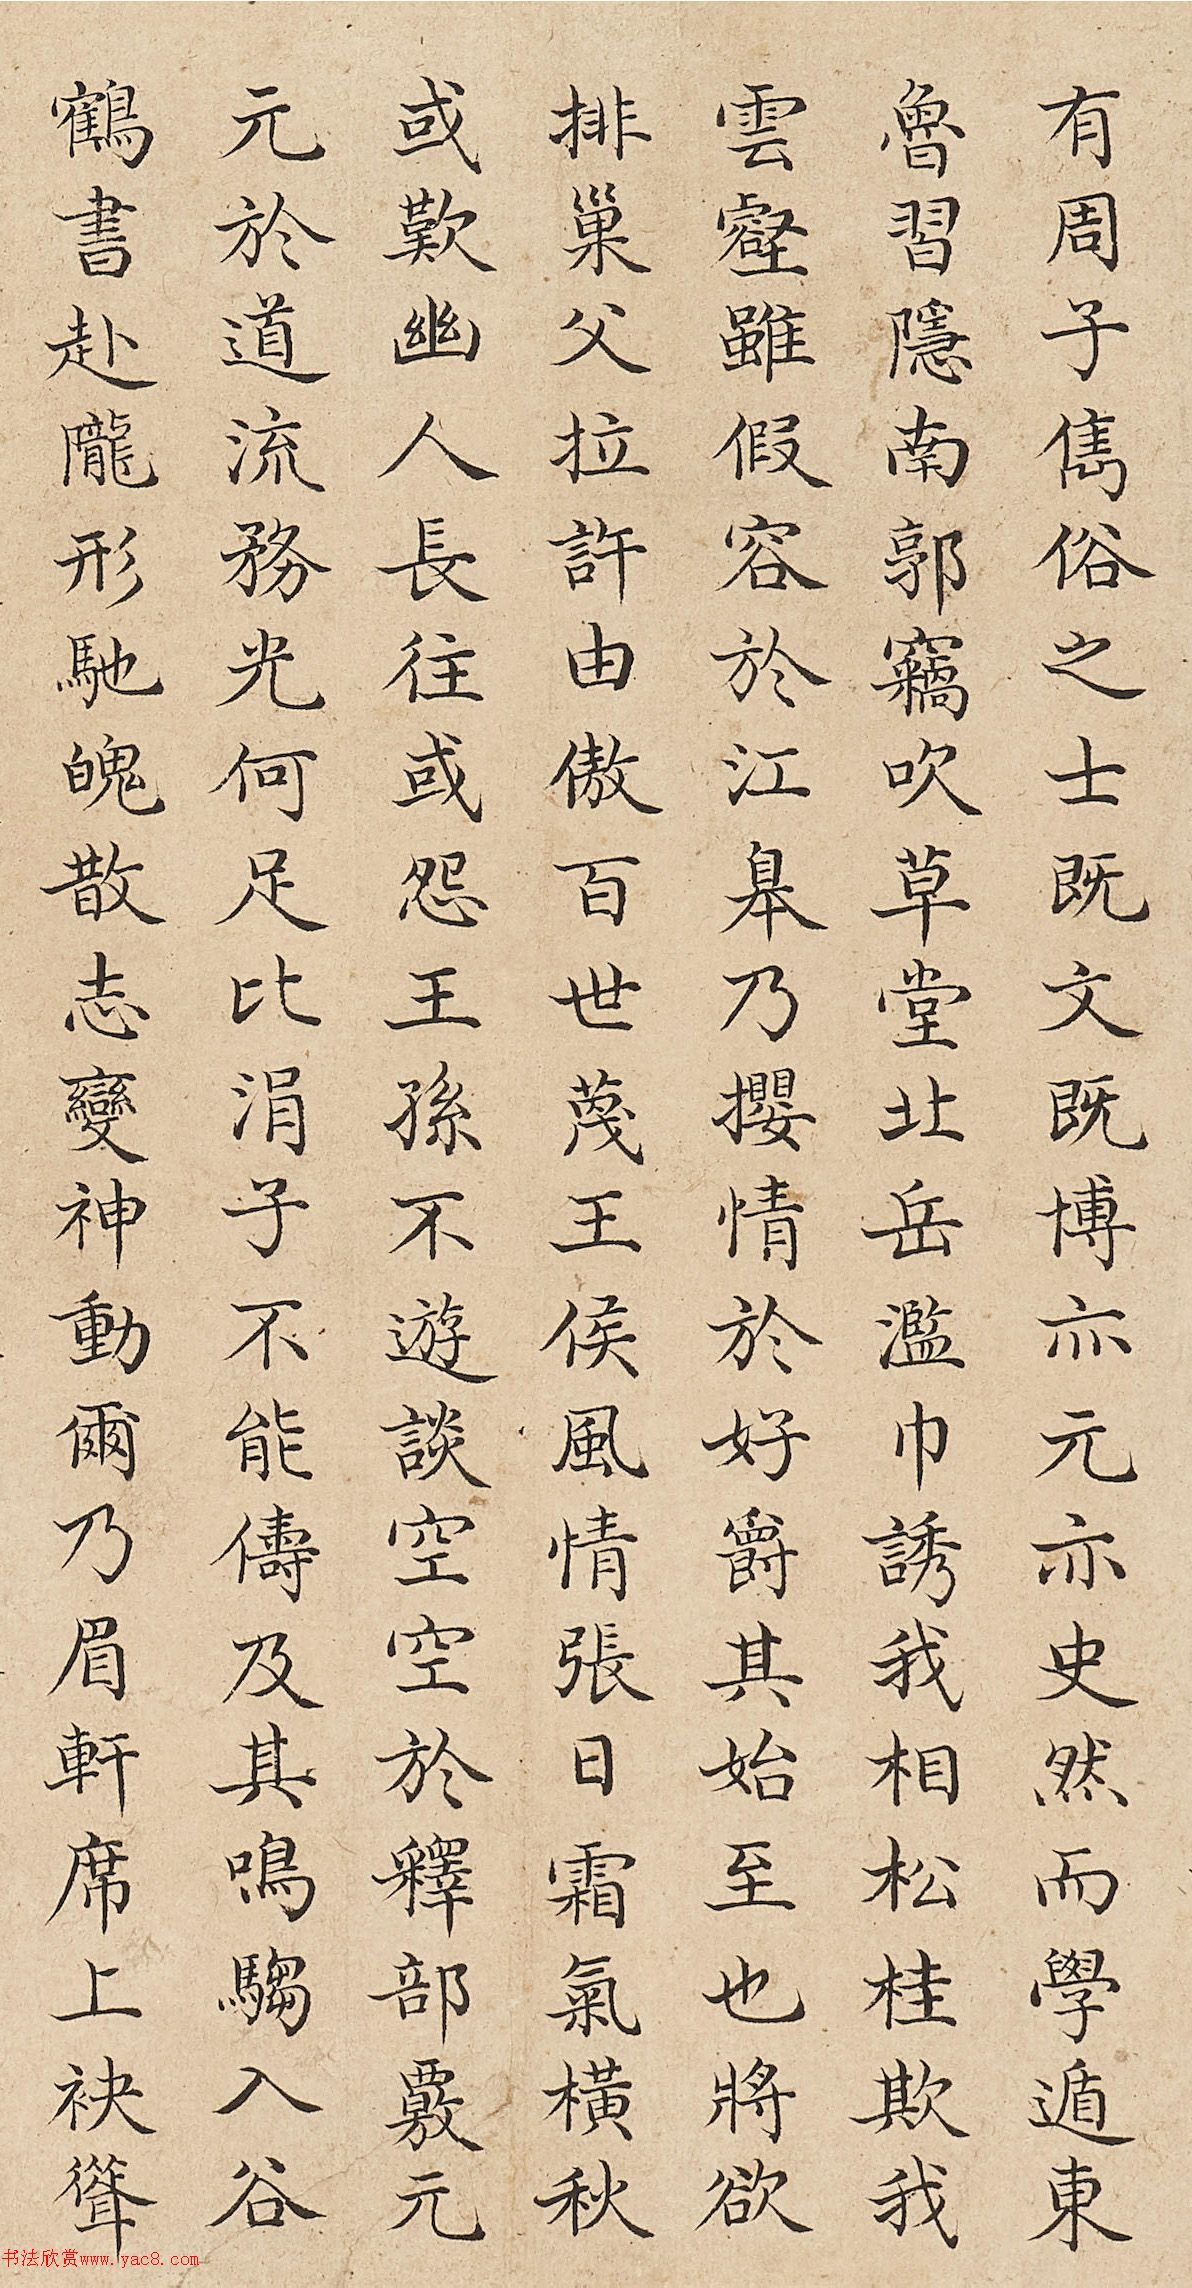 有周子儁俗之士既文既博亦元亦史然而學遁東
魯習隱南郭竊吹草堂北岳濫巾誘我相松桂欺我
雲壑雖假容於江皋乃攖情於好爵其始至也將欲
排巢父拉許由傲百世蔑王侯風情張日霜氣橫秋
或歎幽人長往或怨王孫不遊談空空於釋部覈元
元於道流務光何足比涓子不能儔及其鳴騶入谷
鶴書赴隴形馳魄散志變神動爾乃眉軒席上袂聳
书法欣赏www.yac8.com